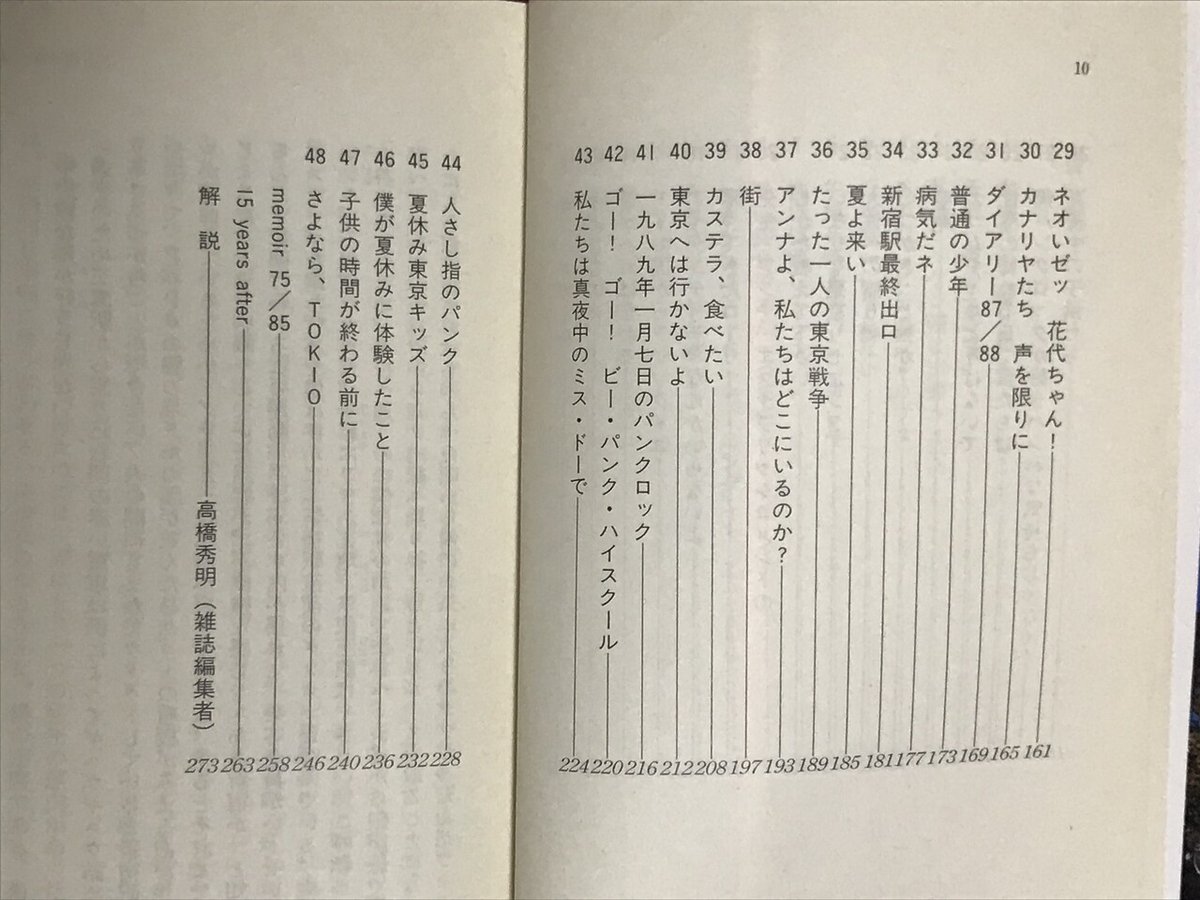 10
29 ネオいゼッ　花代ちゃん！ 161
30 カナリヤたち　声を限りに 165
31 ダイアリー87／88 169
32 普通の少年 173
33 病気だネ 177
34 新宿駅最終出口 181
35 夏よ来い 185
36 たった一人の東京戦争 189
37 アンナよ、私たちはどこにいるのか？ 193
38 街 197
39 カステラ、食べたい 208
40 東京へは行かないよ 212
41 一九八九年一月七日のパンクロック 216
42 ゴー！　ゴー！　ビー・パンク・ハイスクール 220
43 私たちは真夜中のミス・ドーで 224
44 人さし指のパンク 228
45 夏休み東京キッズ 232
46 僕が夏休みに体験したこと 236
47 子供の時間が終わる前に 240
48 さよなら、TOKIO 246
memoir 75／85 258
15 years after 263
解　説 高橋秀明（雑誌編集者） 273